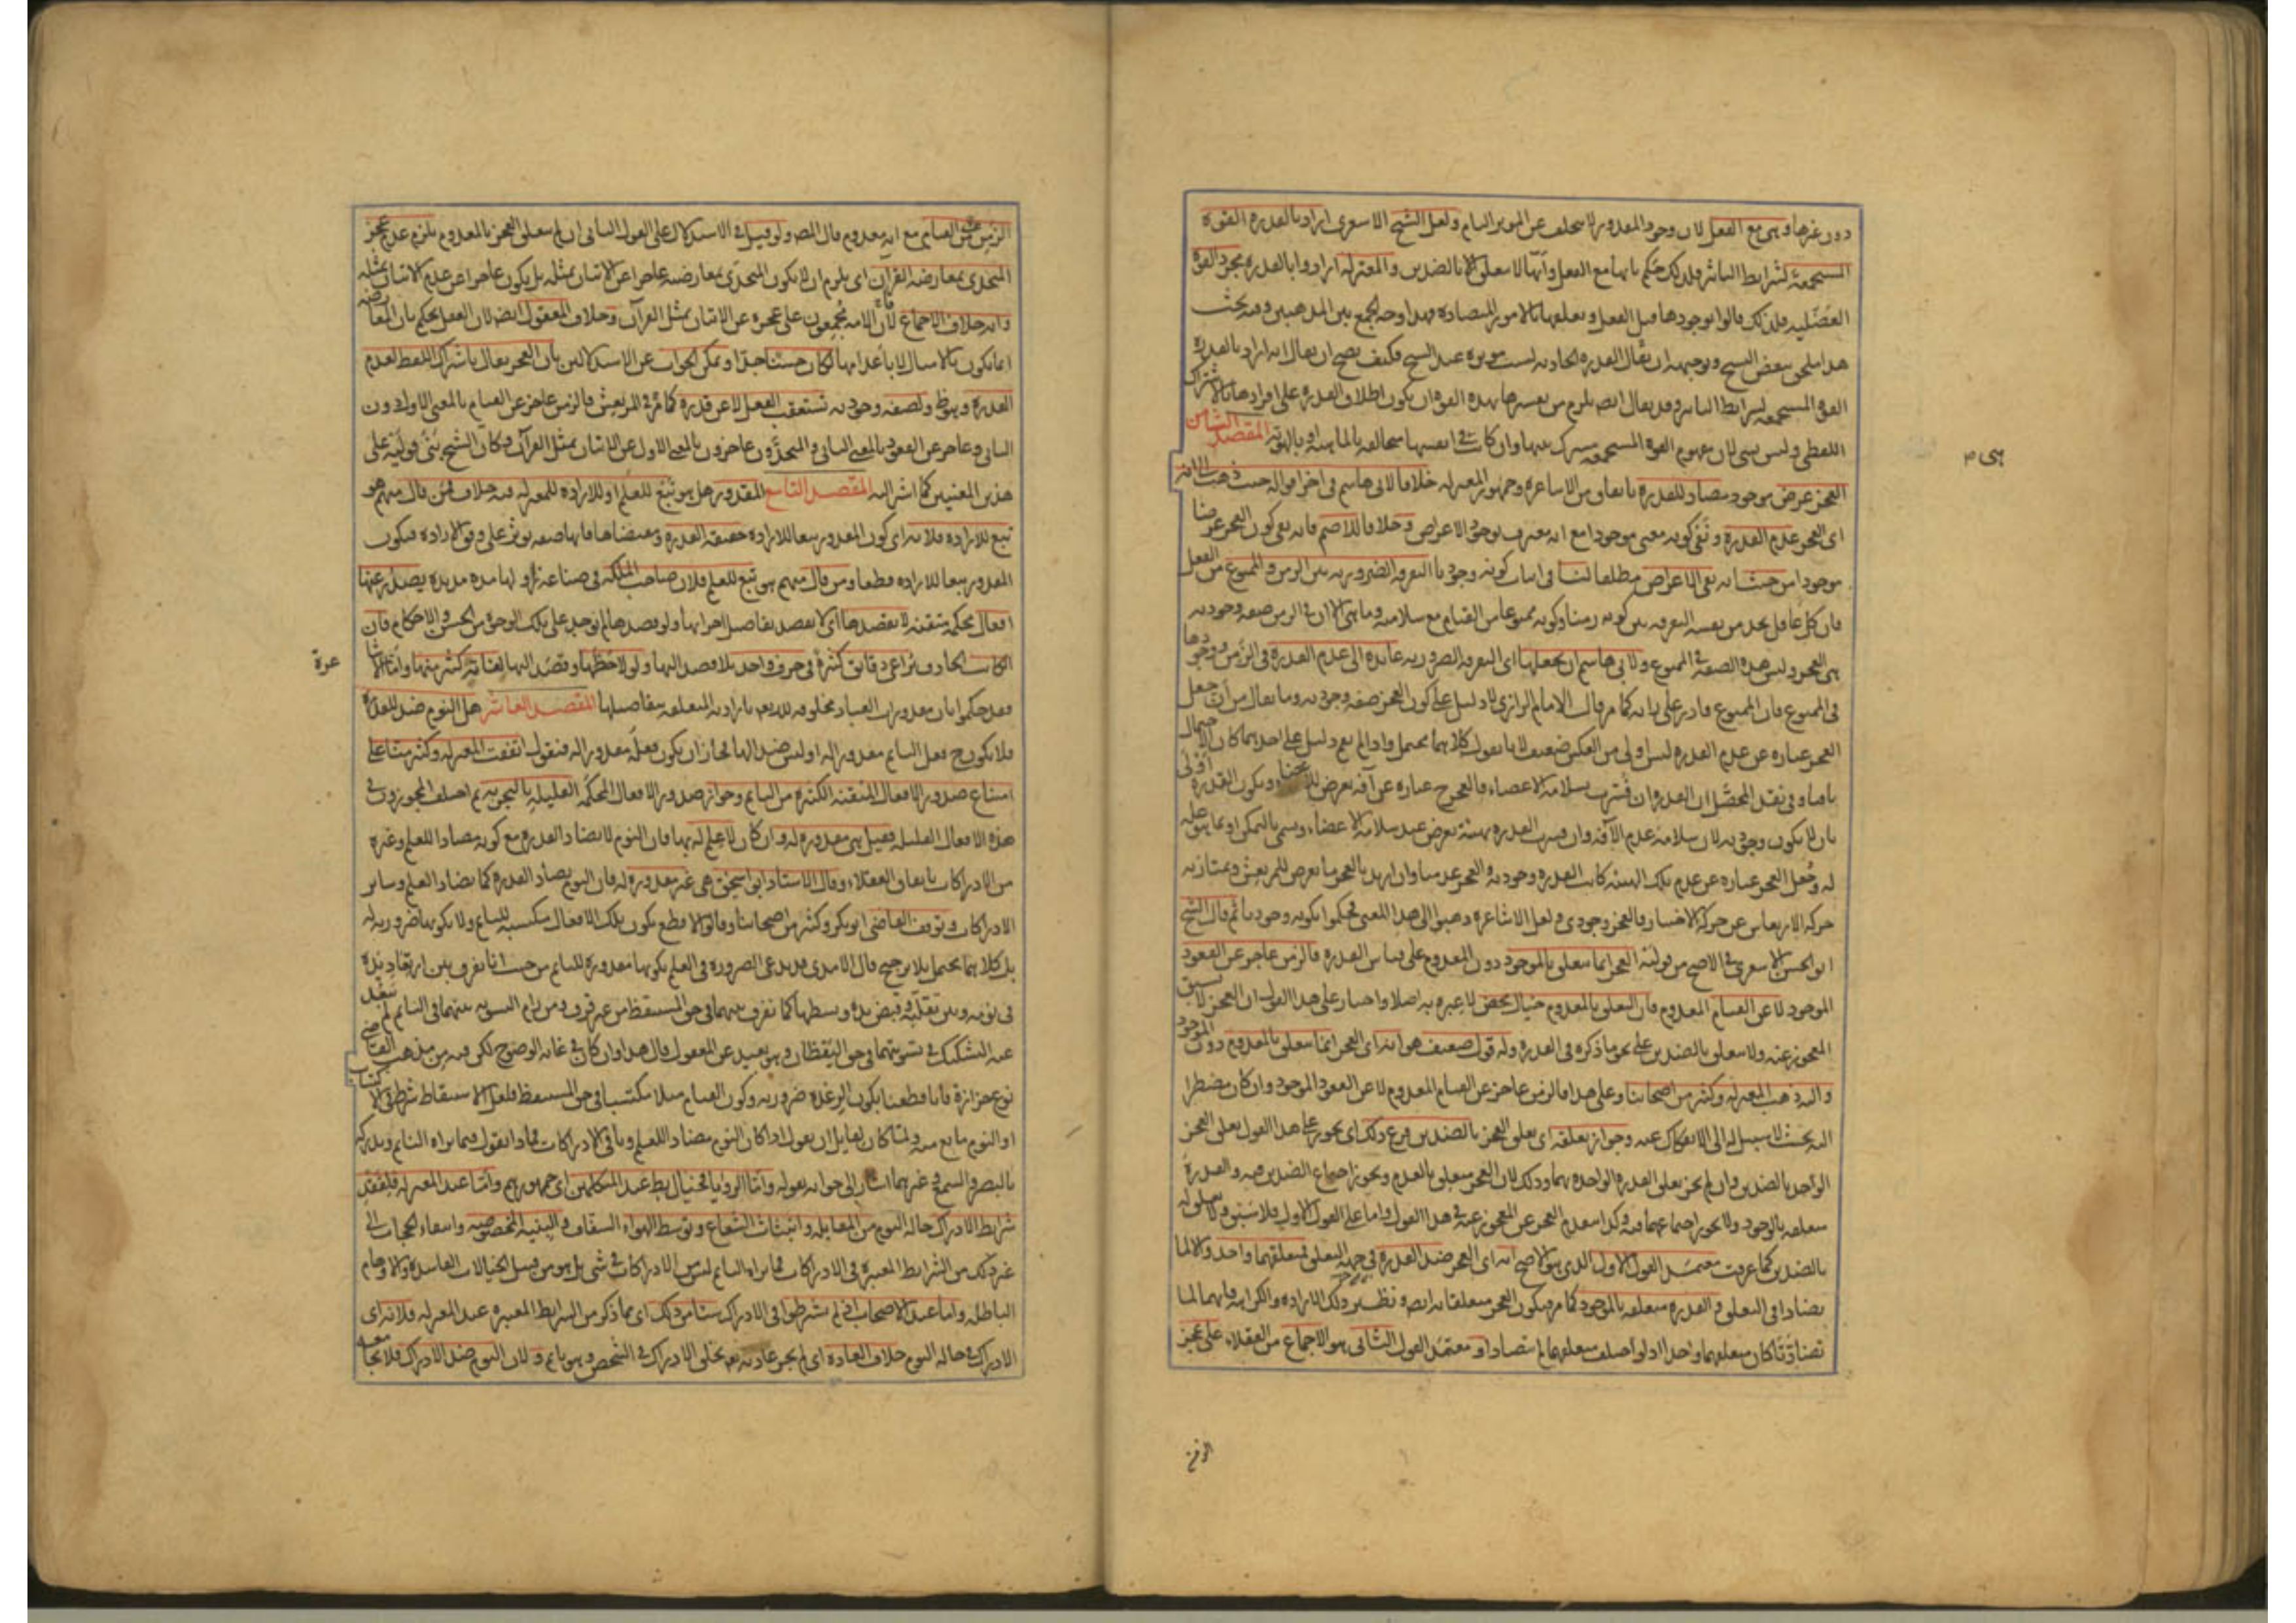 دون غيرها وهى مع الفعل لان وجود المقدور لا يتخلف عن الموثر التام ولعل الشيخ الاشعرى اراد بالقدرة القوة
المستجمعة لشرايط التاثير فلذلك حكم بانها مع الفعل وانها لا تتعلق بالضدين والمعتزلة ارادوا بالقدرة مجرد القوة
العضلية فلذلك قالوا بوجودها قبل الفعل وتعلقها بالامور المتضادة فهذا وجه الجمع بين المذهبين وفيه بحث
القوة المستجمعة لشرايط التاثير وقد يقال ايضا يلزم من تفسيرها بهذه القوة ان يكون اطلاق القدرة على افرادها بالاشتراك
اللفظى وليس بشى لان مفهوم القوة المستجمعة مشترك بينها وان كانت فى انفسها متخالفة بالماهية او بالهوية المقصد الثامن
العجز عرض موجود مضاد للقدرة باتفاق من الاشاعرة وجمهور المعتزلة خلافا لابى هاشم فى اخر اقواله حيث ذهب الى انه
اى العجز عدم القدرة ونفى كونه معنى موجودا مع انه معترف بوجود الاعراض وخلافا للاصم فانه نفى كون العجز عرضا
موجودا من حيث انه نفى الاعراض مطلقا لنا فى اثبات كونه وجوديا التفرقة الضرورية بين الزمن والممنوع من الفعل
فان كل عاقل يجد من نفسه التفرقة بين كونه زمنا وكونه ممنوعا من القيام مع سلامته وما هى الا ان فى الزمن صفة وجودية
هى العجز وليس هذه الصفة فى الممنوع ولابى هاشم ان يجعلها اى التفرقة الضرورية عايدة الى عدم القدرة فى الزمن ووجودها
فى الممنوع فان الممنوع قادر على راينا كما مر قال الامام الرازى لا دليل على كون العجز صفة وجودية وما يقال من ان جعل
العجز عبارة عن عدم القدرة ليس اولى من العكس ضعيف لانا نقول كلاهما محتمل واذا لم يقم دليل على احدهما كان الاحتمال
باقيا وفى نقد المحصل ان القدرة ان فسرت بسلامة الاعضاء فالعجز عبارة عن آفة تعرض للاعضاء وتكون القدرة اولى
بان لا يكون وجودية لان سلامة عدم الآفة وان فسرت القدرة بهيئة تعرض عند سلامة الاعضاء وتسمى بالتمكن او بما هو علة
له وجعل العجز عبارة عن عدم تلك الهيئة كانت القدرة وجودية والعجز عدميا وان اريد بالعجز ما يعرض للمرتعش وتمتاز به
حركة الارتعاش عن حركة الاختيار فالعجز وجودى ولعل الاشاعرة ذهبوا الى هذا المعنى فحكموا بكونه وجوديا ثم قال الشيخ
ابو الحسن الاشعرى فى الاصح من قوليه العجز انما يتعلق بالموجود دون المعدوم على قياس القدرة فالزمن عاجز عن القعود
الموجود لا عن القيام المعدوم فان التعلق بالمعدوم خيال محض لا عبرة به اصلا واختار على هذا القول ان العجز لا يسبق
المعجوز عنه ولا يتعلق بالضدين على نحو ما ذكره فى القدرة وله قول ضعيف هو انه اى العجز انما يتعلق بالمعدوم دون الموجود
واليه ذهب المعتزلة وكثير من اصحابنا وعلى هذا فالزمن عاجز عن القيام المعدوم لا عن القعود الموجود وان كان مضطرا
اليه بحيث لا سبيل له الى الانفكاك عنه وجواز تعلقه اى تعلق العجز بالضدين فرع ذلك اى يجوز على هذا القول تعلق العجز
الواحد بالضدين وان لم يجز تعلق القدرة الواحدة بهما وذلك لان العجز متعلق بالعدم ويجوز اجتماع الضدين فيه والقدرة
متعلقة بالوجود ولا يجوز اجتماعهما فيه وكذا يتقدم العجز عن المعجوز عنه فى هذا القول واما على القول الاول فلا سبق ولا تعلق له
بالضدين كما عرفت معتمد القول الاول الذى هو الاصح انه اى العجز ضد القدرة فى جهة التعلق فمتعلقهما واحد والا لما
تضادا فى التعلق والقدرة متعلقة بالموجود كما مر فيكون العجز متعلقا به ايضا ونظير ذلك الارادة والكراهة فانهما لما
تضادتا كان متعلقهما واحدا اذ لو اختلف متعلقهما لم يتضادا ومعتمد القول الثانى هو الاجماع من العقلاء على عجز
الزمن
الزمن عن القيام مع انه معدوم قال المصـ ولو قيل فى الاستدلال على القول الثانى ان لم يتعلق العجز بالمعدوم يلزم عدم عجز
المتحدى بمعارضة القرآن اى يلزم ان لا يكون المتحدى بمعارضته عاجزا عن الاتيان بمثله بل يكون عاجزا عن عدم الاتيان بمثله
وانه خلاف الاجماع لان الامة مجمعون على عجزه عن الاتيان بمثل القرآن وخلاف المعقول ايضا لان العقل يحكم بان المعارضة
انما يكون بالامثال لا باعدامها لكان حسنا جدا ويمكن الجواب عن الاستدلالين بان العجز يقال باشتراك اللفظ لعدم
القدرة وهو ظ ولصفة وجودية تستعقب الفعل لا عن قدرة كما مر فى المرتعش فالزمن عاجز عن القيام بالمعنى الاول دون
الثانى وعاجز عن القعود بالمعنى الثانى والمتحدون عاجزون بالمعنى الاول عن الاتيان بمثل القرآن وكان الشيخ بنى قوليه على
هذين المعنيين كما اشرنا اليه المقصد التاسع المقدور هل هو تبع للعلم او للارادة للمعتزلة فيه خلاف فمن قال منهم هو
تبع للارادة فلانه اى كون المقدور تبعا للارادة حقيقة القدرة ومقتضاها فانها صفة توثر على وفق الارادة فيكون
المقدور تبعا للارادة قطعا ومن قال منهم هو تبع للعلم فلان صاحب الملكة فى صناعة زاولها مدة مديدة يصدر عنها
افعال محكمة متقنة لا يقصدها اى لا يقصد تفاصيل اجزائها ولو قصدها لم توجد على تلك الوجوه من الحسن والاحكام فان
الكاتب الحاذق يراعى دقايق كثيرة فى حرف واحد بلا قصد اليها ولو لاحظها وقصد اليها لفاته كثير منها واما الاشا
عرة
فقد حكموا بان مقدورات العباد مخلوقة لله تعم بارادته المتعلقة بتفاصيلها المقصد العاشر هل النوم ضد للقدرة
فلا يكون ح فعل النايم مقدورا له او ليس ضدا لها فجاز ان يكون فعله مقدورا له فنقول اتفقت المعتزلة وكثير منا على
امتناع صدور الافعال المتقنة الكثيرة من النايم وجواز صدور الافعال المحكمة القليلة بالتجربة ثم اختلف المجوزون فى
هذه الافعال القليلة فقيل هى مقدورة له وان كان لا علم له بها فان النوم لا يضاد القدرة مع كونه مضادا للعلم وغيره
من الادراكات باتفاق العقلاء وقال الاستاد ابو اسحق هى غير مقدورة له فان النوم يضاد القدرة كما يضاد العلم وساير
الادراكات وتوقف القاضى ابو بكر وكثير من اصحابنا وقالوا لا قطع بكون تلك الافعال مكتسبة للنايم ولا بكونها ضرورية له
بل كلاهما محتمل بلا ترجيح قال الآمدى قد يدعى الضرورة فى العلم بكونها مقدورة للنايم من حيث انا نفرق بين ارتعاد يده
فى نومه وبين تقلبه وقبض يده وبسطها كما نفرق بينهما فى حق المستيقظ من غير فرق ومن رام التسوية بينهما فى النايم لم يبعد
عنه التشكيك فى تسويتهما فى حق اليقظان وهو بعيد عن المعقول قال هذا وان كان فى غاية الوضوح لكن فيه من مذهب القاضى
نوع حزازة فانا قطعنا بكون الرعدة ضرورية وكون القيام مثلا مكتسبا فى حق المستيقظ فلعل الاستيقاظ شرط فى الاكتساب
او النوم مانع منه ولما كان لقايل ان يقول اذا كان النوم مضادا للعلم وباقى الادراكات فماذا نقول فيما يراه النايم ويدركه
بالبصر والسمع وغيرهما اشار الى جوابه بقوله واما الرؤيا فخيال باطل عند المتكلمين اى جمهورهم واما عند المعتزلة فلفقد
شرايط الادراك حالة النوم من المقابلة وانبثاث الشعاع وتوسط الهواء الشفاف والبنية المخصوصة وانتفاء الحجاب الى
غير ذلك من الشرايط المعتبرة فى الادراكات فما يراه النايم ليس من الادراكات فى شى بل هو من قبيل الخيالات الفاسدة والاوهام
الباطلة واما عند الاصحاب اذ لم يشترطوا فى الادراك شيئا من ذلك اى مما ذكر من الشرايط المعتبرة عند المعتزلة فلانه اى
الادراك فى حالة النوم خلاف العادة اى لم يجر عادته تعم بخلق الادراك فى الشخص وهو نايم ولان النوم ضد الادراك فلا يجامعه